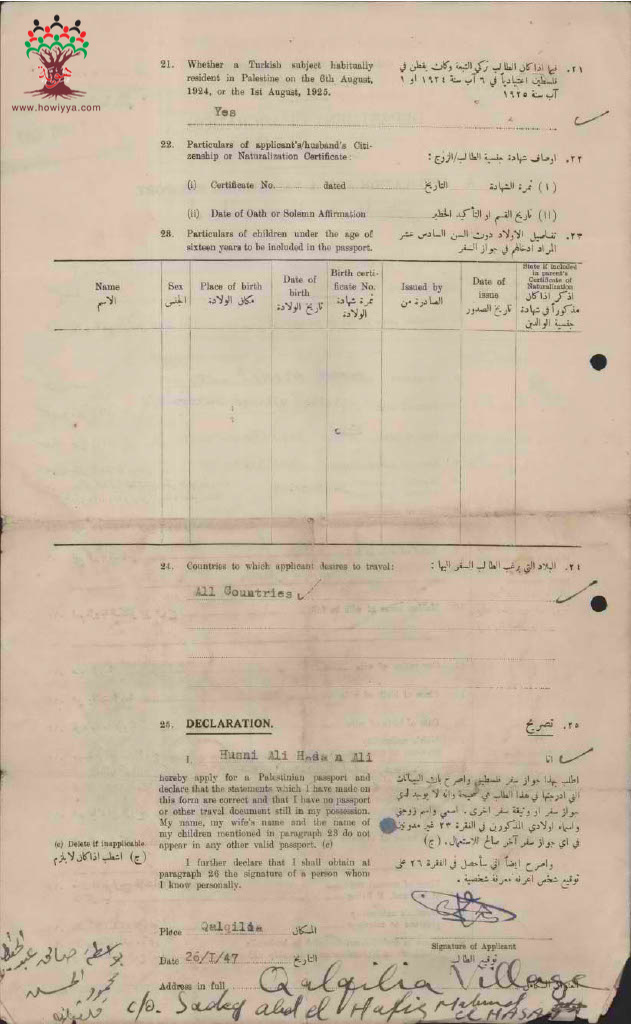 www.howiyya.com
21. Whether a Turkish subject habitually
resident in Palestine on the 6th August,
1924, or the 1st August, 1925.
Yes
٢١. فيما اذا كان الطالب تركي التبعة وكان يقطن في
فلسطين اعتيادياً في ٦ آب سنة ١٩٢٤ او ١
آب سنة ١٩٢٥
22. Particulars of applicant's/husband's Citi-
zenship or Naturalization Certificate:
٢٢. اوصاف شهادة جنسية الطالب/الزوج:
(i) Certificate No. dated التاريخ (١) نمرة الشهادة
(ii) Date of Oath or Solemn Affirmation (١١) تاريخ القسم او التأكيد الخطير
23. Particulars of children under the age of
sixteen years to be included in the passport.
٢٣. تفاصيل الاولاد دون السن السادس عشر
المراد ادخالهم في جواز السفر
Name
الاسم
Sex
الجنس
Place of birth
مكان الولادة
Date of
birth
تاريخ الولادة
Birth certi-
ficate No.
نمرة شهادة
الولادة
Issued by
الصادرة من
Date of
issue
تاريخ الصدور
State if included
in parent's
Certificate of
Naturalization
اذكر اذا كان
مذكوراً في شهادة
جنسية الوالدين
24. Countries to which applicant desires to travel:
٢٤. البلاد التي يرغب الطالب السفر اليها:
All Countries
25. DECLARATION.
٢٥. تصريح
I, Husni Ali Hasan Ali
انا
hereby apply for a Palestinian passport and
declare that the statements which I have made on
this form are correct and that I have no passport
or other travel document still in my possession.
My name, my wife's name and the name of
my children mentioned in paragraph 23 do not
appear in any other valid passport. (c)
I further declare that I shall obtain at
paragraph 26 the signature of a person whom
I know personally.
(c) Delete if inapplicable
(ج) اشطب اذا كان لا يلزم
اطلب بهذا جواز سفر فلسطيني واصرح بان البيانات
التي ادرجتها في هذا الطلب هي صحيحة وانه لا يوجد لدي
جواز سفر او وثيقة سفر اخرى. اسمي واسم زوجتي
واسماء اولادي المذكورين في الفقرة ٢٣ غير مدونين
في اي جواز سفر آخر صالح للاستعمال. (ج)
واصرح ايضاً اني سأحصل في الفقرة ٢٦ على
توقيع شخص اعرفه معرفة شخصية.
Place Qalqilia المكان
Signature of Applicant
توقيع الطالب
Date 26/I/47 التاريخ
Address in full Qalqilia Village
c/o. Sadeq abd el Hafiz Mahmod
el Hasan